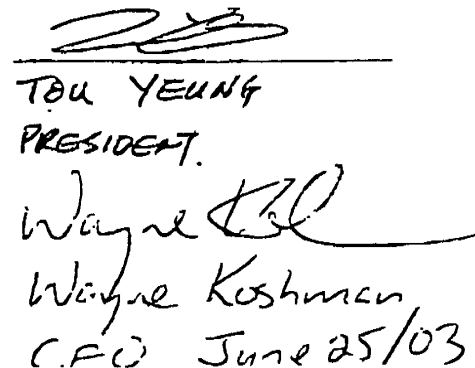 TOU YEUNG
PRESIDENT.
Wayne
Wayne Koshman
C.F.O June 25/03